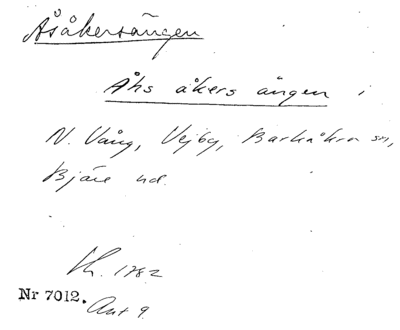 Åsåkersängen
Åhs åkers ängen i
N. Vång, Vejby, Barkåkra sn,
Bjäre hd.
Sk. 1782
Nr 7012.
Akt 9.